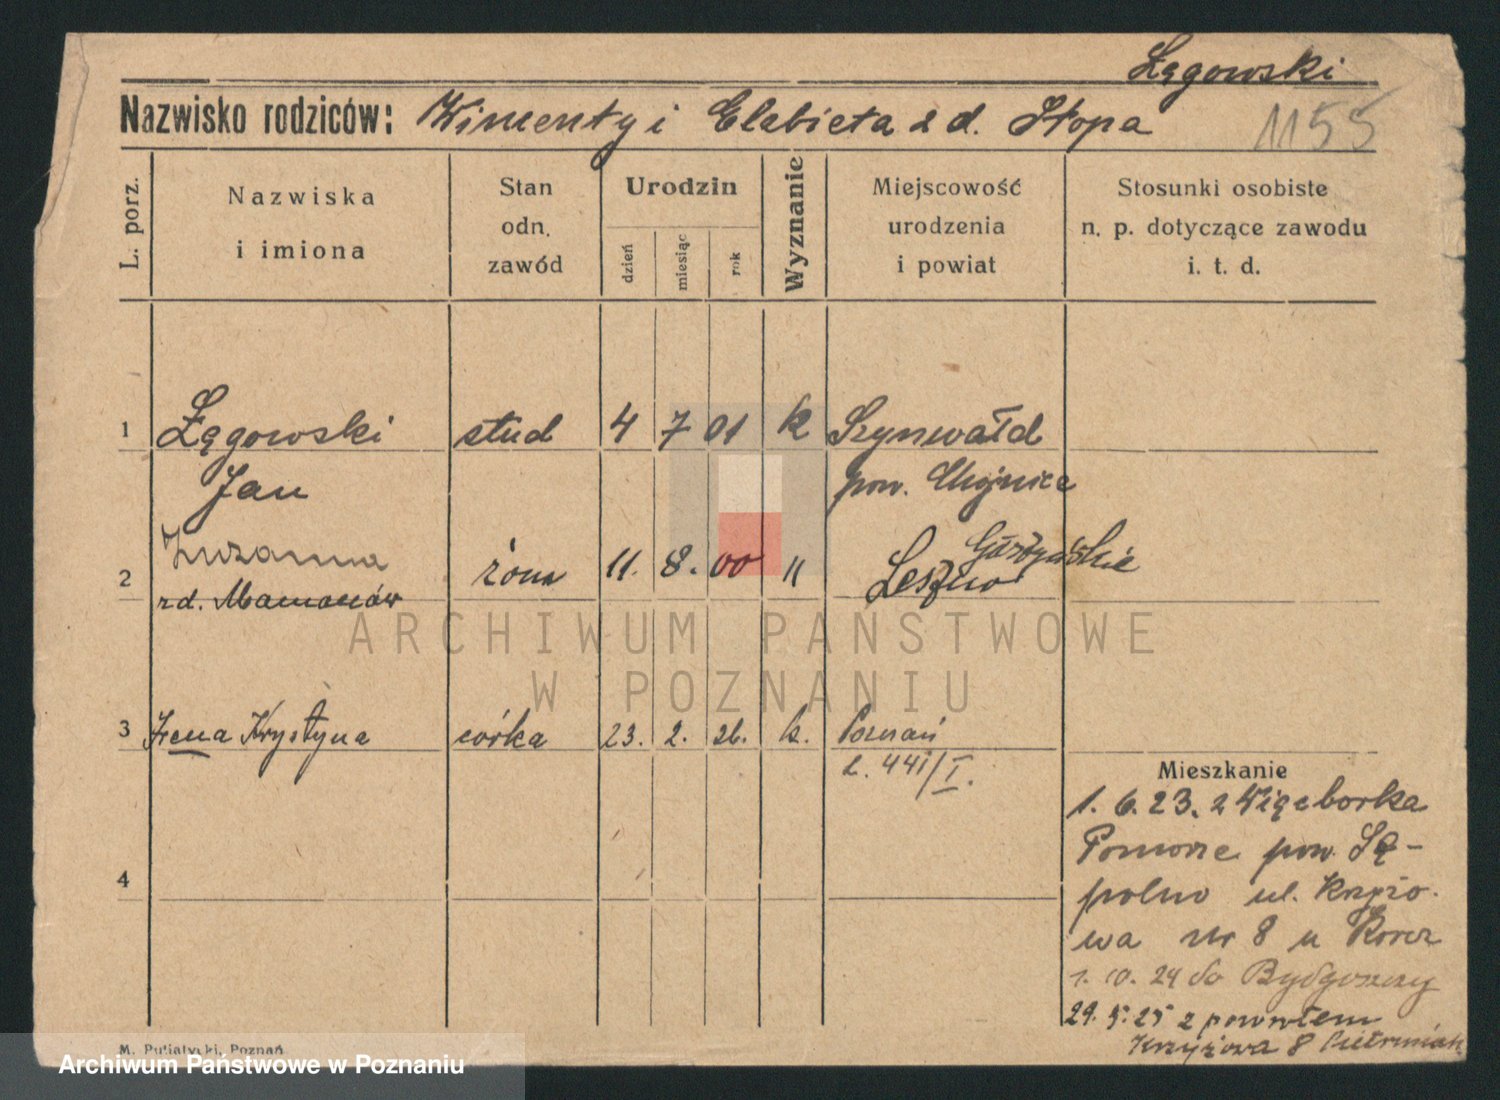 Łągowski
Nazwisko rodziców: Wincenty i Elżbieta z d. Stopa
1155
L. porz.
Nazwiska i imiona
Stan odn. zawód
Urodzin
dzień
miesiąc
rok
Wyznanie
Miejscowość urodzenia i powiat
Stosunki osobiste n. p. dotyczące zawodu i. t. d.
1 Łągowski stud 4 7 01 k Szynwałd
Jan pow. Chojnice
2 Zuzanna żona 11. 8. 00 " Leszno
rd.
3 Irena Krystyna córka 23. 2. 26. k. Poznań
L. 441/I.
4
Mieszkanie
1. 6. 23. z Więcborka
Pomorze pow. Sę-
polno ul. Krzyżo-
wa Nr 8 u
1. 10. 24 do Bydgoszczy
29. 5. 25 z powrotem
Krzyżowa 8
M. Putiatycki, Poznań
ARCHIWUM PAŃSTWOWE
W POZNANIU
Archiwum Państwowe w Poznaniu